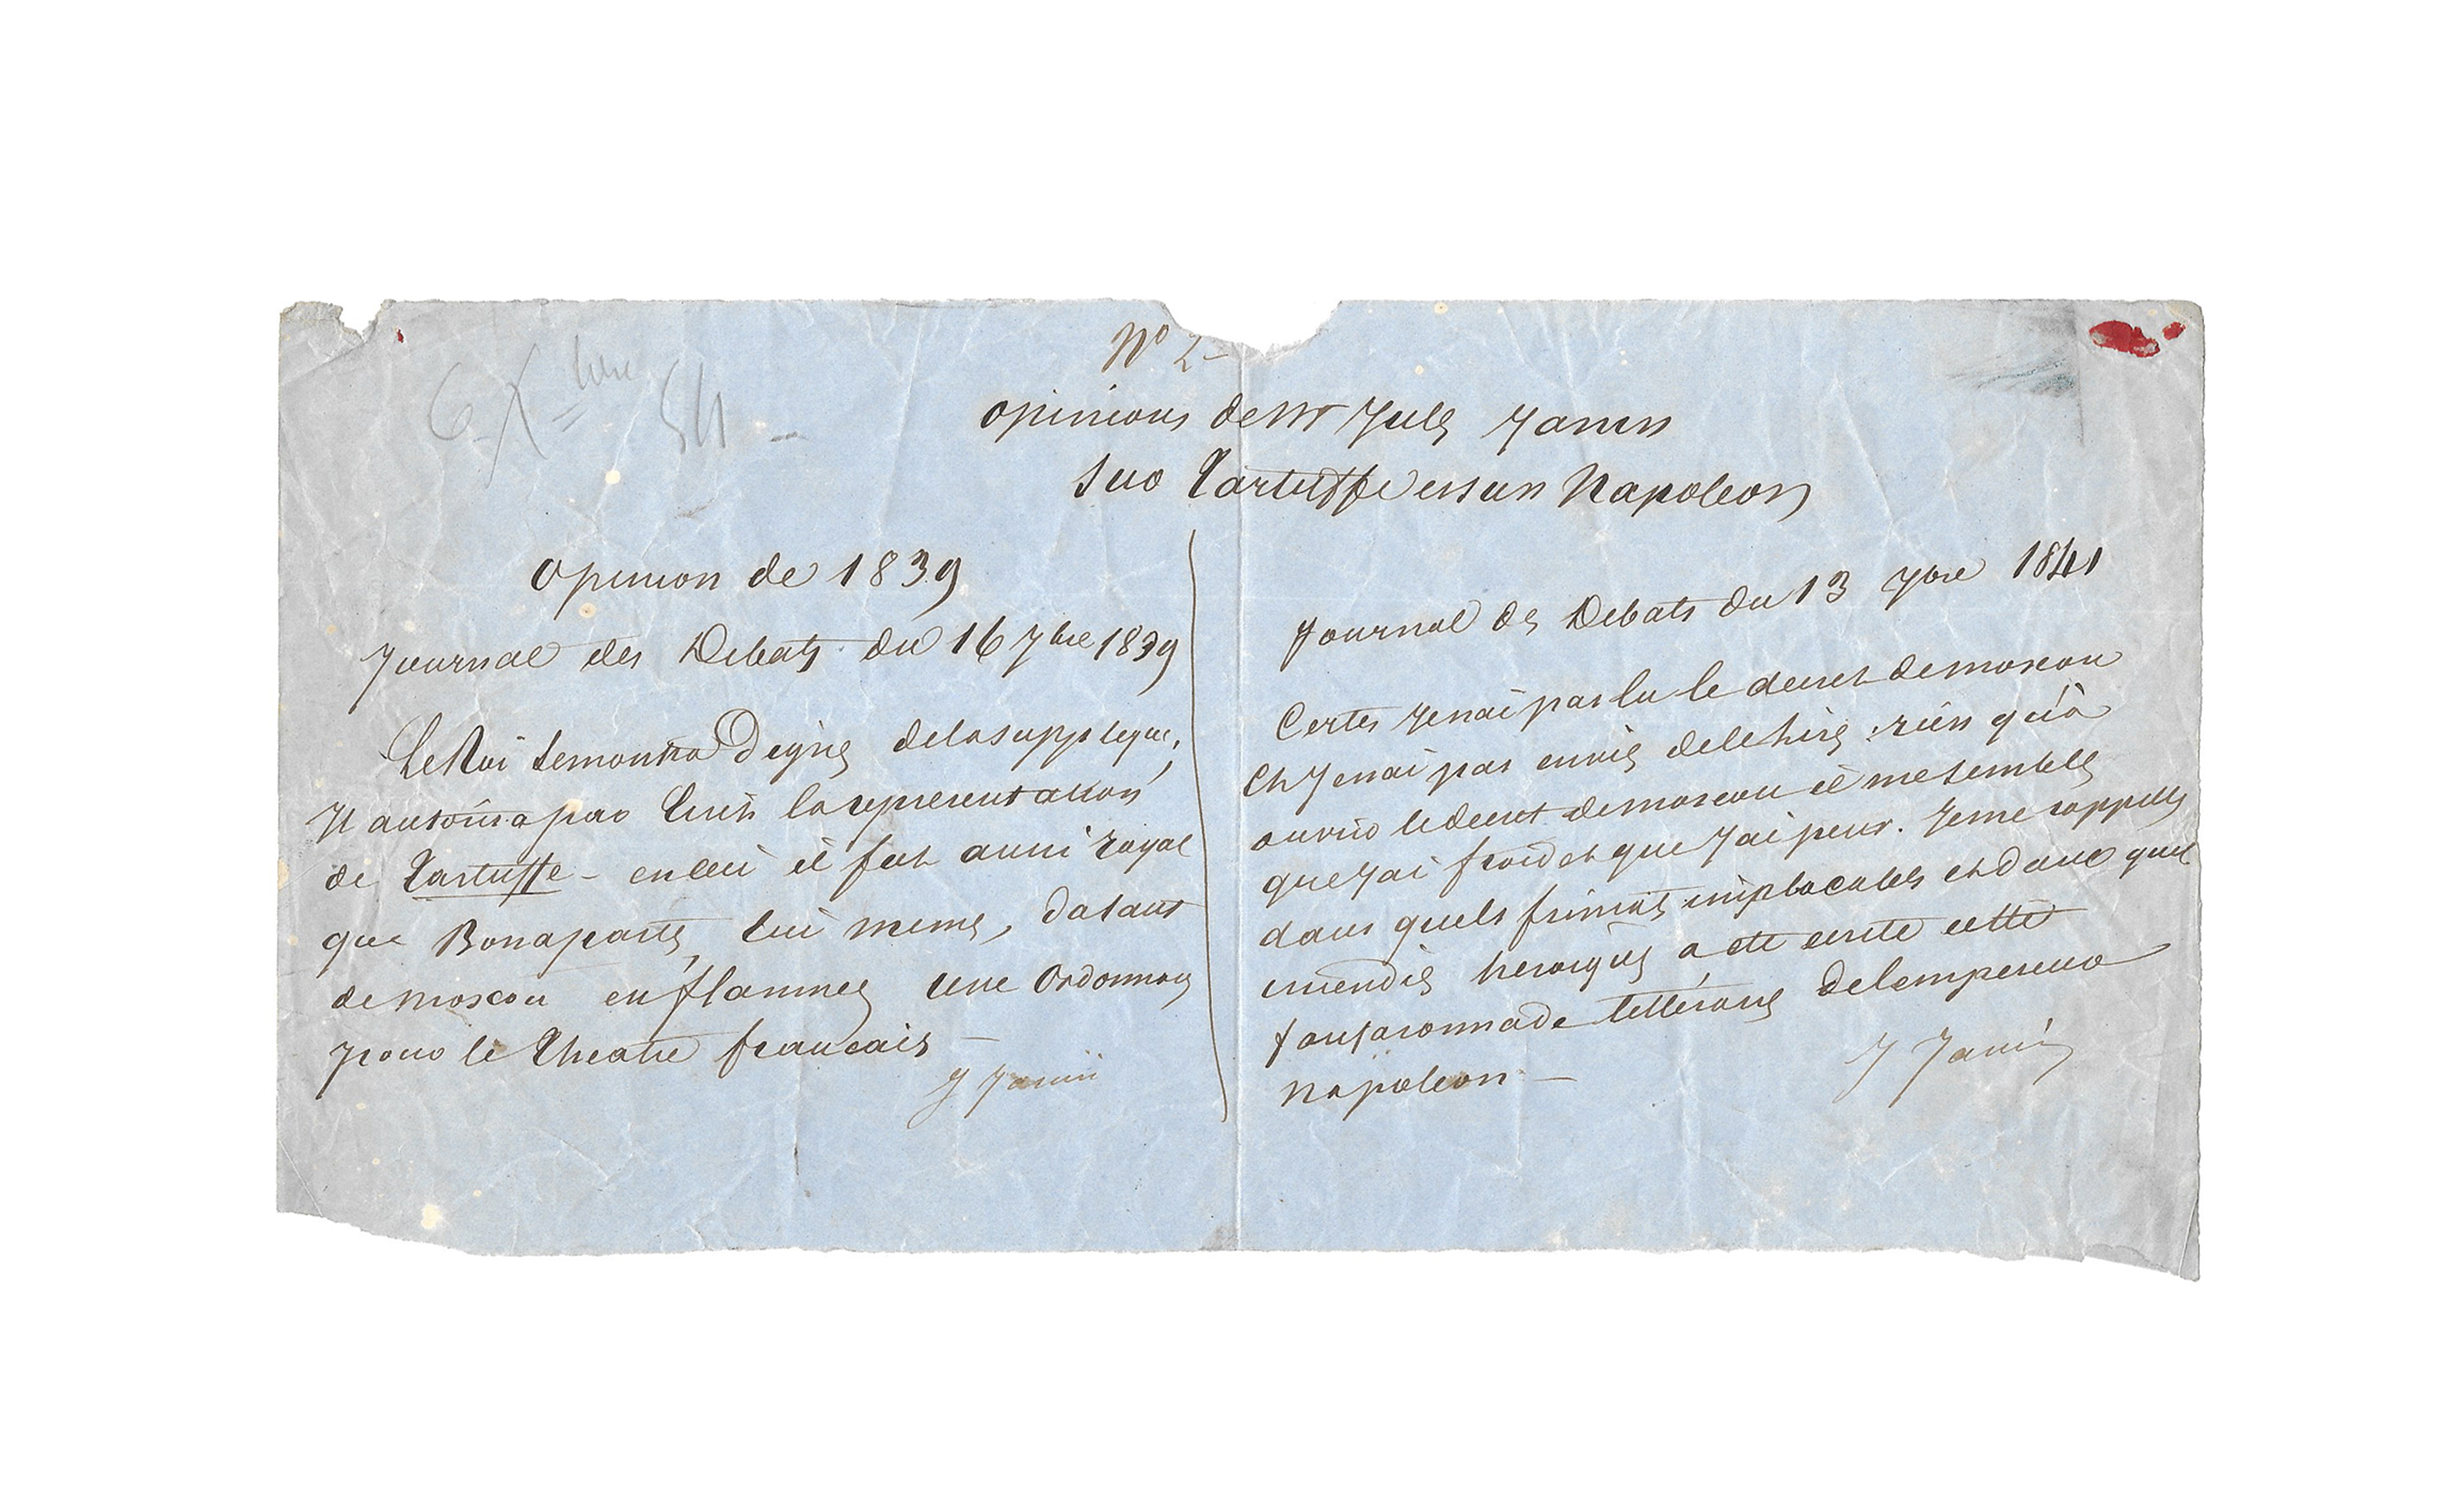 6 Xbre 54 -
N° 2 -
opinions de Mr Jules Janin
sur Tartuffe et sur Napoleon
Opinion de 1839
Journal des Debats du 16 7bre 1839
Le Roi se montra digne de la supplique,
Il autorisa par écrit la representation
de Tartuffe - en ceci il fut aussi royal
que Bonaparte, lui meme, datant
de moscou en flammes une Ordonnance
pour le Theatre francais -
J Janin
Journal des Debats du 13 7bre 1841
Certes Je nai pas lu le decret de moscou
Et Je nai pas envie de le lire ; rien qu'à
ouvrir le decret de moscou il me semble
que Jai froid et que Jai peur. Je me rappelle
dans quels frimats implacables et dans quel
incendie heroique a eté ecrite cette
fanfaronnade littéraire de lempereur
Napoleon -
J Janin